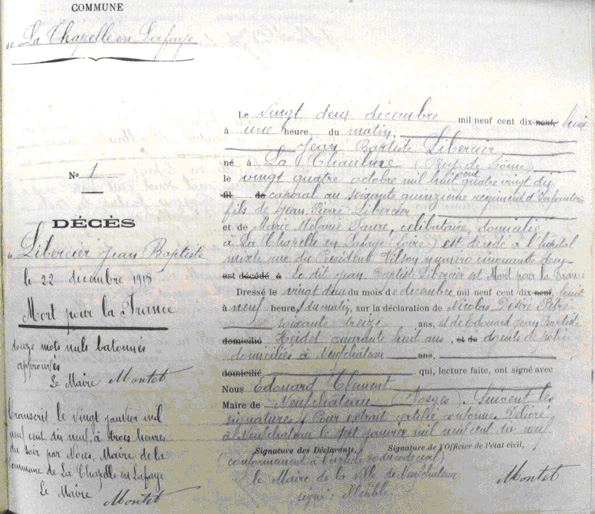 COMMUNE
de La Chapelle en Lafaye
Nº 1
DÉCÈS
de Libercier Jean Baptiste
le 22 décembre 1918
Mort pour la France
mots nuls batonnés
approuvés
Le Maire Montet
Transcrit le vingt janvier mil
neuf cent dix neuf, à trois heures
du soir par Nous, Maire de la
Commune de La Chapelle en Lafaye
Le Maire Montet
Le vingt deux décembre mil neuf cent dix-neuf, huit
à une heure, du matin,
Jean Baptiste Libercier
né à La Chaulme (Puy de Dôme)
le vingt quatre octobre mil huit cent quatre vingt dix
fil de caporal au soixante quinzième régiment d'Infanterie
fils de Jean Pierre Libercier
et de Marie Melanie Favre, célibataire, domicilié
à La Chapelle en Lafaye (Loire) est décédé à l'hôpital
mixte rue du Président Wilson numéro cinquante
est décédé à le dit Jean Baptiste Libercier est Mort pour la France
Dressé le vingt deux du mois de décembre mil neuf cent neuf, huit
à neuf heures, du matin, sur la déclaration de Nicolas Désiré
soixante treize ans, et de Edouard Jean Baptiste
domicilié quarante huit ans, et de agents de police
domiciliés à Neufchateau ans,
domicilié qui, lecture faite, ont signé avec
Nous Edouard Clement
Maire de Neufchateau (Vosges). Suivent les
signatures. Pour extrait certifié conforme. Délivré
à Neufchateau le sept janvier mil neuf cent dix neuf
Signature des Déclarants, Signature de l'Officier de l'état civil,
(conformément à l'article du code civil)
le Maire de la ville de Neufchateau
signé:
Montet